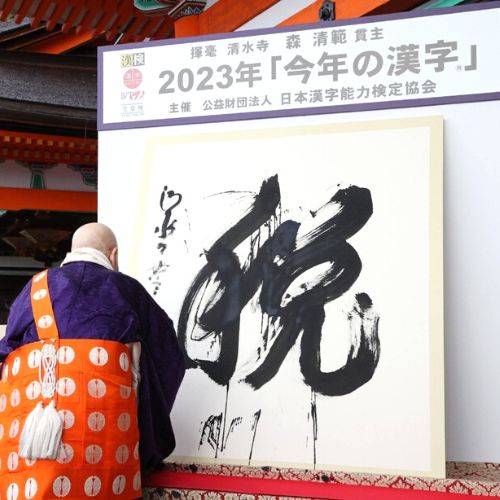 漢検
揮毫 清水寺 森 清範 貫主
2023年「今年の漢字」
主催 公益財団法人 日本漢字能力検定協会
税